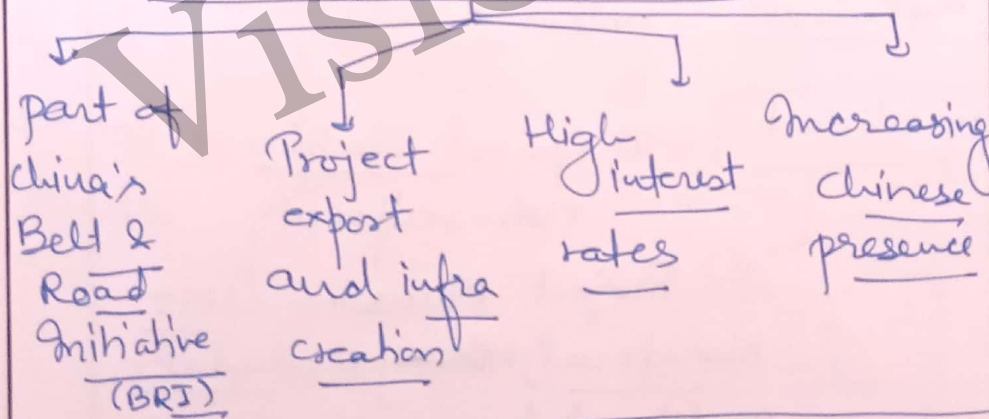 Visi
part of
China's
Belt &
Road
Initiative
(BRI)
Project
export
and infra
creation
High
interest
rates
Increasing
Chinese
presence